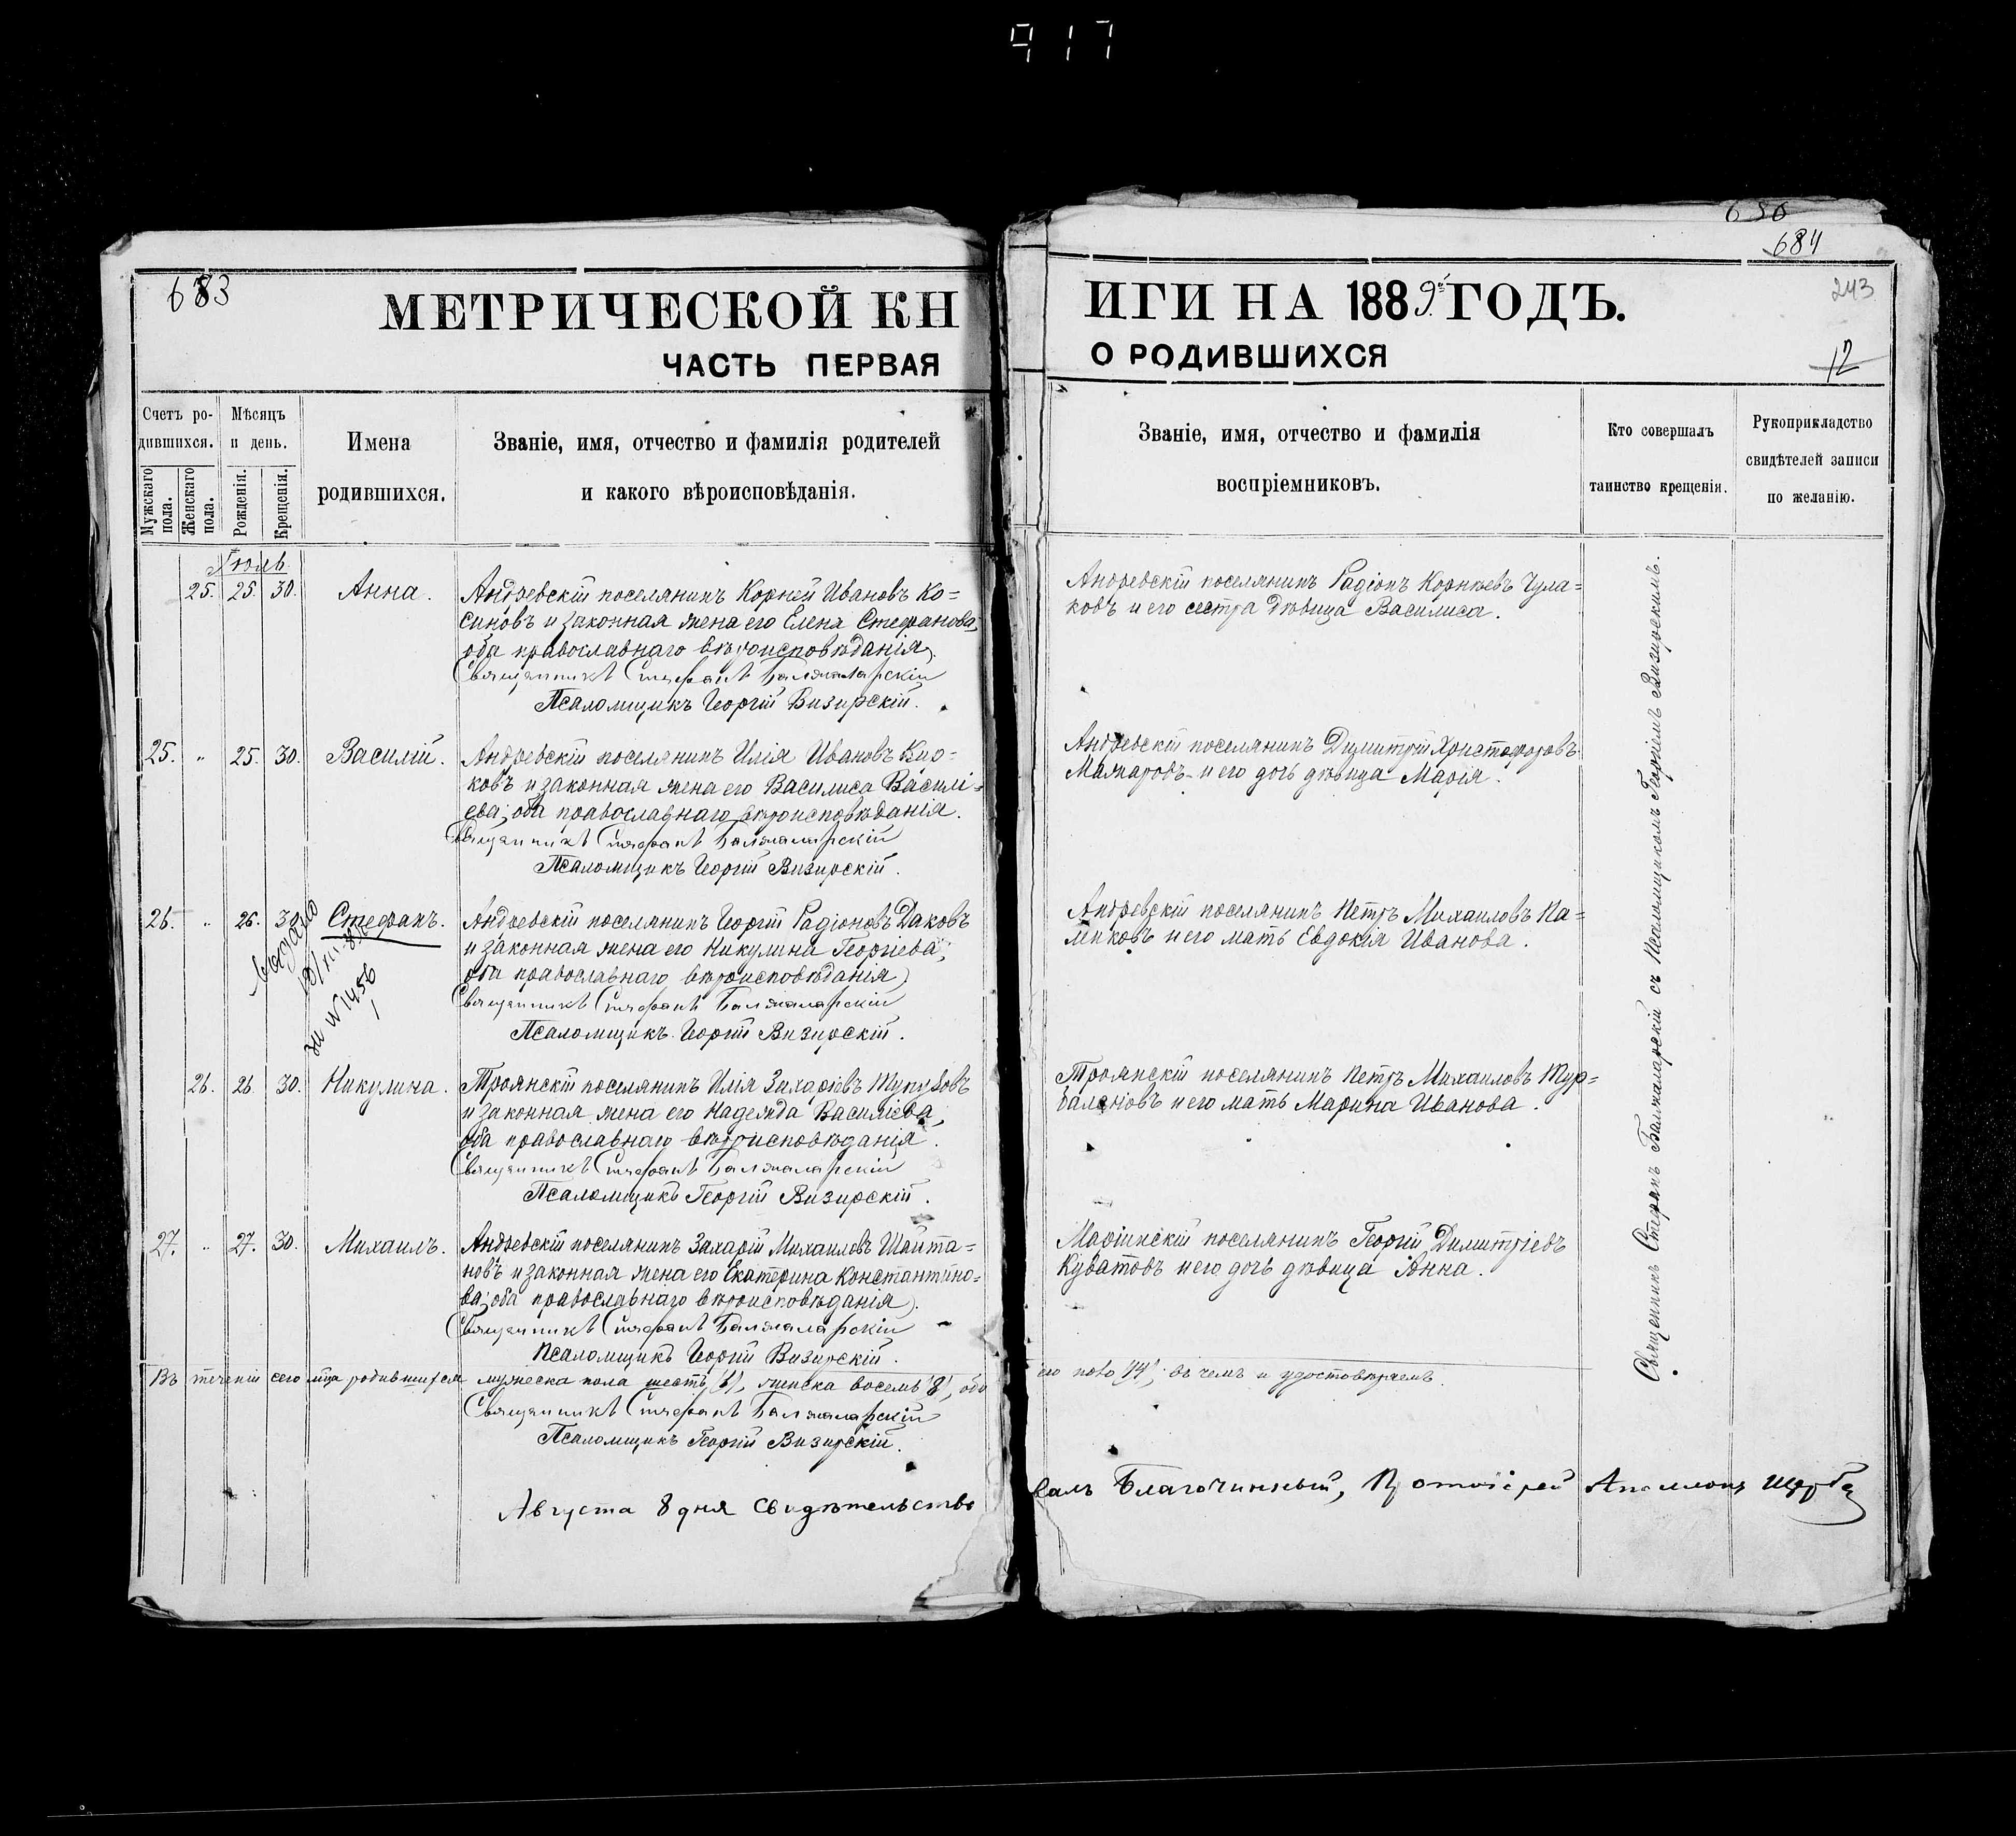 917
683
МЕТРИЧЕСКОЙ КН
ЧАСТЬ ПЕРВАЯ
Счетъ ро-
дившихся.
Мужскаго
пола.
Женскаго
пола.
Мѣсяцъ
и день.
Рожденія.
Крещенія.
Имена
родившихся.
Званіе, имя, отчество и фамилія родителей
и какого вѣроисповѣданія.
Іюль
25. 25. 30. Анна. Андревскій поселянинъ Корней Ивановъ Ко=
синовъ и законная жена его Елена Стефанова,
оба православнаго вѣроисповѣданія.
Священникъ Стефанъ Балжаларскій
Псаломщикъ Георгій Визирскій.
25. " 25. 30. Василій. Андревскій поселянинъ Илія Ивановъ Кио=
ковъ и законная жена его Василиса Василі=
ева, оба православнаго вѣроисповѣданія.
Священникъ Стефанъ Балжаларскій
Псаломщикъ Георгій Визирскій.
26. " 26. 30. Стефанъ. Андревскій поселянинъ Георгій Радіоновъ Даковъ
и законная жена его Никулина Георгіева,
оба православнаго вѣроисповѣданія
Священникъ Стефанъ Балжаларскій
Псаломщикъ Георгій Визирскій.
выдано
за № 1456
26. 26. 30. Никулина. Троянскій поселянинъ Илія Захаріевъ
и законная жена его Надежда Василіева,
оба православнаго вѣроисповѣданія.
Священникъ Стефанъ Балжаларскій
Псаломщикъ Георгій Визирскій.
27. " 27. 30. Михаилъ. Андревскій поселянинъ Захарій Михаиловъ Шайта=
новъ и законная жена его Екатерина Константино=
ва, оба православнаго вѣроисповѣданія.
Священникъ Стефанъ Балжаларскій
Псаломщикъ Георгій Визирскій.
Въ теченіи сего мца родившихся мужеска пола шесть (6), женска восемь (8), обо
Священникъ Стефанъ Балжаларскій
Псаломщикъ Георгій Визирскій.
Августа 8 дня свидѣтельство
684
243
12
ИГИ НА 1889й ГОДЪ.
О РОДИВШИХСЯ
Званіе, имя, отчество и фамилія
воспріемниковъ.
Кто совершалъ
таинство крещенія.
Рукоприкладство
свидѣтелей записи
по желанію.
Андревскій поселянинъ Радіонъ Корнѣевъ Чула=
ковъ и его сестра дѣвица Василиса.
Андревскій поселянинъ Димитрій Христофоровъ
Мажаровъ и его дочь дѣвица Марія.
Андревскій поселянинъ Петръ Михаиловъ Па=
ликовъ и его мать Евдокія Иванова.
Троянскій поселянинъ Петръ Михаиловъ Жур=
балановъ и его мать Марина Иванова.
Маріинскій поселянинъ Георгій Димитріевъ
Куватовъ и его дочь дѣвица Анна.
его поло (14), въ чемъ и удостовѣряемъ.
валъ Благочинный, Протоіерей Аполлонъ Щерба
Священникъ Стефанъ Балжаларскій съ Псаломщикомъ Георгіемъ Визирскимъ.